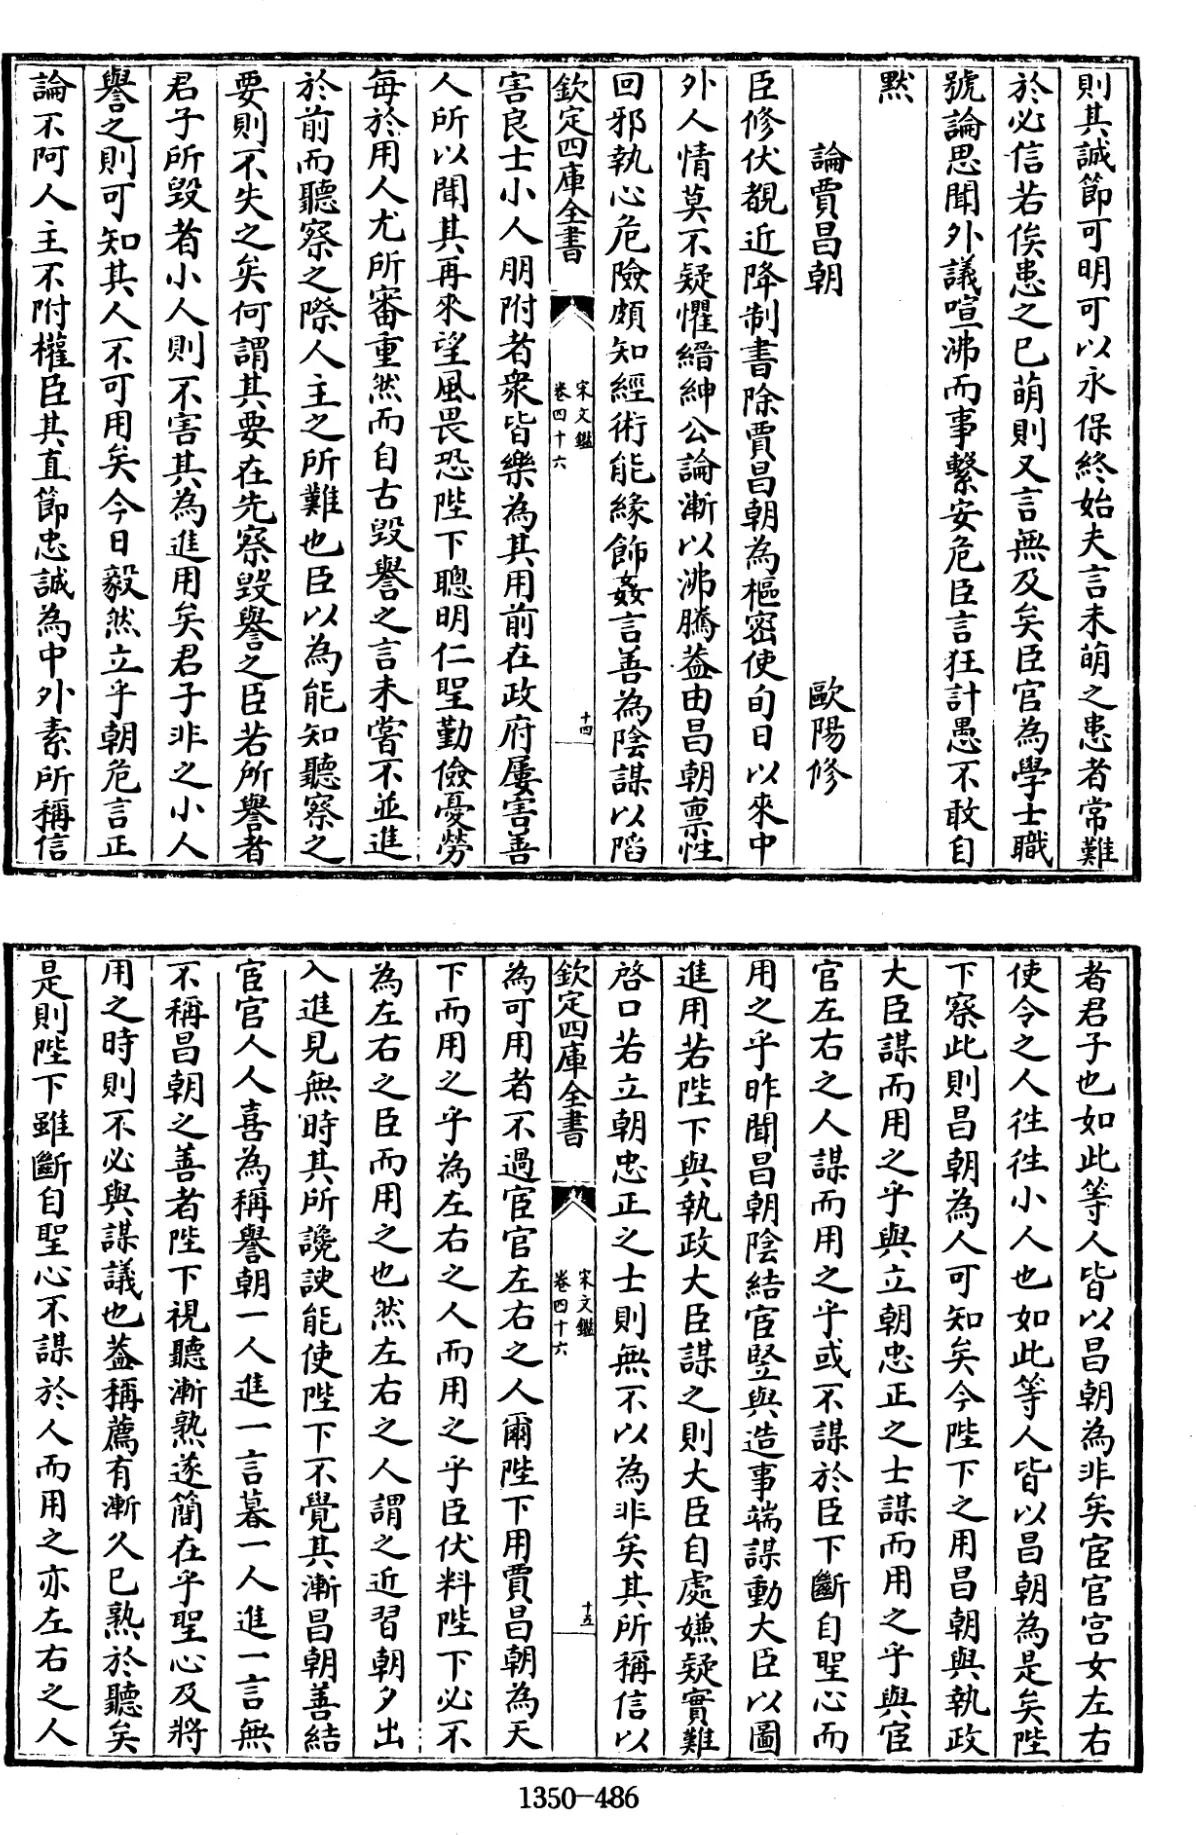 則其誠節可明可以永保終始夫言未萌之患者常難
於必信若俟患之已萌則又言無及矣臣官為學士職
號論思聞外議喧沸而事繫安危臣言狂計愚不敢自
黙
論賈昌朝 歐陽修
臣修伏覩近降制書除賈昌朝為樞密使旬日以來中
外人情莫不疑懼縉紳公論漸以沸騰葢由昌朝禀性
回邪執心危險頗知經術能緣飾姦言善為陰謀以陷
欽定四庫全書 宋文鑑 卷四十六 十四
害良士小人朋附者衆皆樂為其用前在政府屢害善
人所以聞其再來望風畏恐陛下聰明仁聖勤儉憂勞
每於用人尤所審重然而自古毀譽之言未嘗不並進
於前而聽察之際人主之所難也臣以為能知聽察之
要則不失之矣何謂其要在先察毀譽之臣若所譽者
君子所毀者小人則不害其為進用矣君子非之小人
譽之則可知其人不可用矣今日毅然立乎朝危言正
論不阿人主不附權臣其直節忠誠為中外素所稱信
者君子也如此等人皆以昌朝為非矣宦官宫女左右
使令之人徃徃小人也如此等人皆以昌朝為是矣陛
下察此則昌朝為人可知矣今陛下之用昌朝與執政
大臣謀而用之乎與立朝忠正之士謀而用之乎與宦
官左右之人謀而用之乎或不謀於臣下斷自聖心而
用之乎昨聞昌朝陰結宦竪與造事端謀動大臣以圖
進用若陛下與執政大臣謀之則大臣自處嫌疑實難
啓口若立朝忠正之士則無不以為非矣其所稱信以
欽定四庫全書 宋文鑑 卷四十六 十五
為可用者不過宦官左右之人爾陛下用賈昌朝為天
下而用之乎為左右之人而用之乎臣伏料陛下必不
為左右之臣而用之也然左右之人謂之近習朝夕出
入進見無時其所讒諛能使陛下不覺其漸昌朝善結
宦官人人喜為稱譽朝一人進一言暮一人進一言無
不稱昌朝之善者陛下視聽漸熟遂簡在乎聖心及將
用之時則不必與謀議也葢稱薦有漸久已熟於聽矣
是則陛下雖斷自聖心不謀於人而用之亦左右之人
1350-486